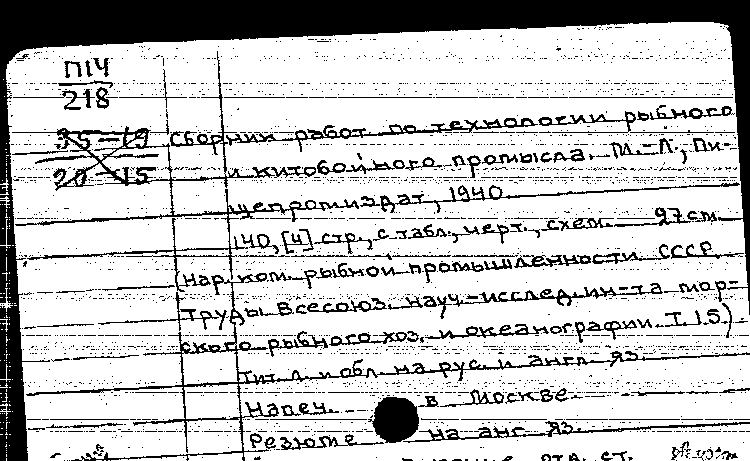 П14
218
35-19
20-15
Сборник работ по технологии рыбного
и китобойного промысла. М.-Л., Пи-
щепромиздат, 1940.
140, [4] стр., с табл., черт., схем. 27 см.
(Нар. ком. рыбной промышленности СССР.
Труды Всесоюз. науч.-исслед. ин-та мор-
ского рыбного хоз. и океанографии. Т. 15.)
Тит. л. и обл. на рус. и англ. яз.
Напеч. в Москве.
Резюме на анг. яз.
отд. ст.